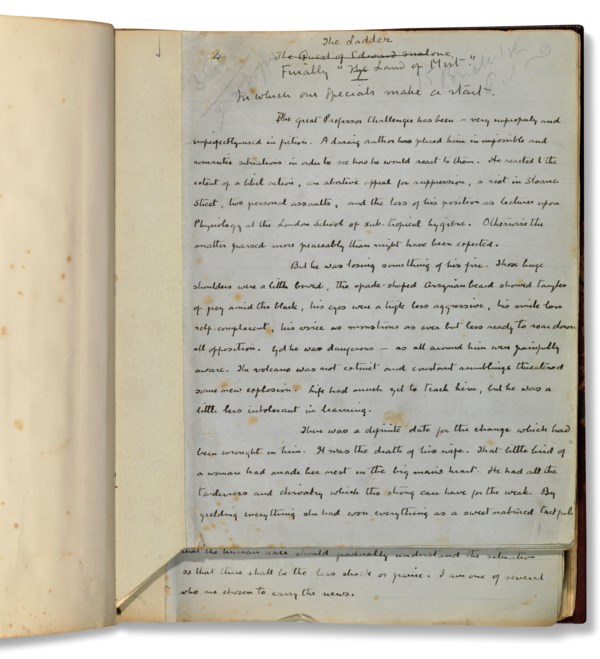 The Ladder
The Quest of Edward Malone
Finally "The Land of Mist"
In which our Specials make a start.
The great Professor Challenger has been – very improperly and
imperfectly – used in fiction. A daring author has placed him in impossible and
romantic situations in order to see how he would react to them. He reacted to the
extent of a libel action, an abortive appeal for suppression, a riot in Sloane
Street, two personal assaults, and the loss of his position as lecturer upon
Physiology at the London School of Sub-tropical hygiene. Otherwise the
matter passed more peaceably than might have been expected.
But he was losing something of his fire. Those huge
shoulders were a little bowed, the spade-shaped Assyrian beard showed tangles
of grey amid the black, his eyes were a trifle less aggressive, his smile less
self-complacent, his voice as monstrous as ever but less ready to roar down
all opposition. Yet he was dangerous – as all around him were painfully
aware. The volcano was not extinct and constant rumblings threatened
some new explosion. Life had much yet to teach him, but he was a
little less intolerant in learning.
There was a definite date for the change which had
been wrought in him. It was the death of his wife. That little bird of
a woman had made her nest in the big man's heart. He had all the
tenderness and chivalry which the strong can have for the weak. By
yielding everything she had won everything as a sweet natured tactful
that the human race should gradually understand the situation
so that there shall be the less shock or panic. I am one of several
who are chosen to carry the news.